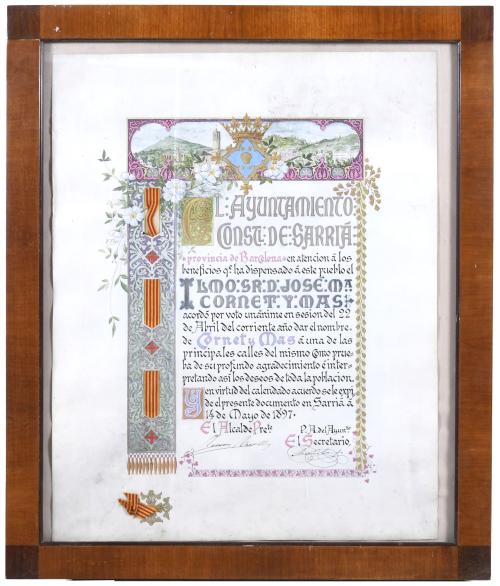 EL: AYUNTAMIENTO
CONST: DE: SARRIÁ
provincia de Barcelona en atencion á los
beneficios qe ha dispensado á este pueblo el
ILMO: SR: D: JOSÉ: Mª
CORNET: Y: MAS:
acordó por voto unánime en sesion del 22
de Abril del corriente año dar el nombre
de Cornet y Mas á una de las
principales calles del mismo como prue-
ba de su profundo agradecimiento é inter-
pretando así los deseos de toda la poblacion.
Y en virtud del calendado acuerdo se le expi-
de el presente documento en Sarriá á
14 de Mayo de 1897.
El Alcalde Pre.te P. A. del Ayun.to
El Secretario,